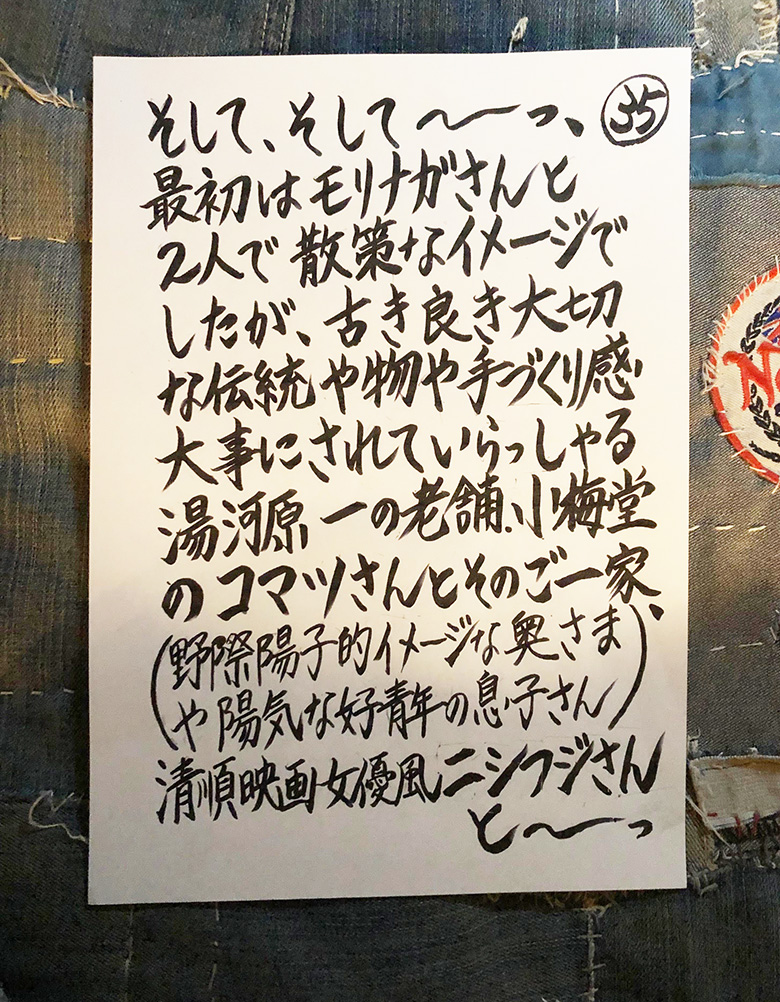 そして、そして〜〜っ、 ㉟
最初はモリナガさんと
2人で散策なイメージで
したが、古き良き大切
な伝統や物や手づくり感
大事にされていらっしゃる
湯河原一の老舗、小梅堂
のコマツさんとそのご一家、
(野際陽子的イメージな奥さま
や陽気な好青年の息子さん)
清順映画女優風ニシフジさん
と〜〜っ